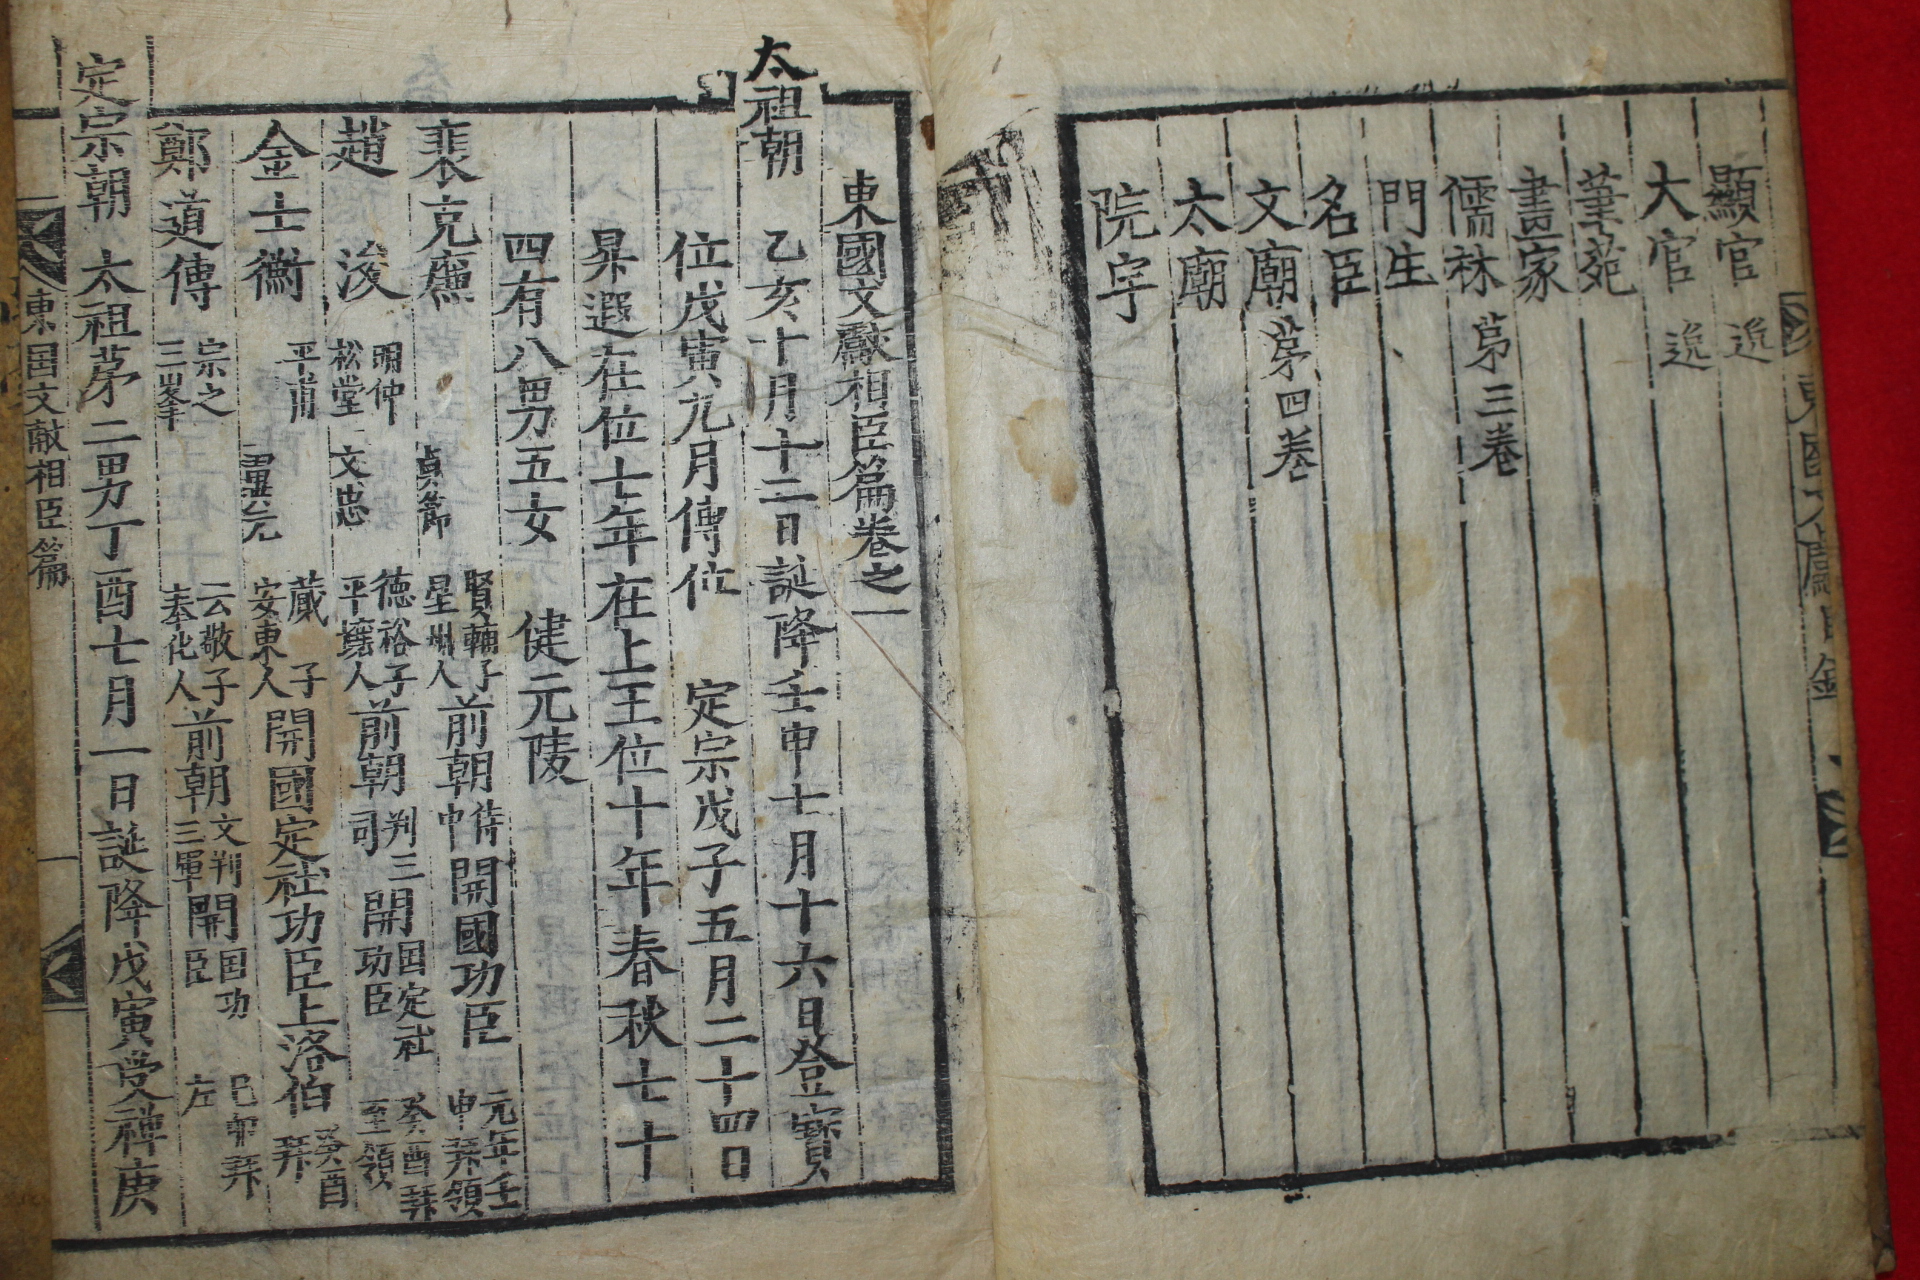 顯官
大官
筆苑
畫家
儒林 第三卷
門生
名臣
文廟 第四卷
太廟
院宇
東國文獻相臣篇卷之一
太祖朝 乙亥十月十二日誕降壬申七月十六日登寶
位戊寅九月傳位 定宗戊子五月二十四日
昇遐在位七年在上王位十年春秋七十
四有八男五女 健元陵
裵克廉 貞節 賢輔子 星州人 前朝侍中 開國功臣 元年壬申拜領
趙浚 明仲 松堂 文忠 德裕子 平壤人 前朝判三司 開国定社功臣 癸酉拜至領
金士衡 平甫 翼元 蕆子 安東人 開國定社功臣上洛伯 癸酉拜
鄭道傳 宗之 三峯 云敬子 奉化人 前朝文判三軍 開国功臣 己卯拜左
定宗朝 太祖第二男丁酉七月一日誕降戊寅受禪庚
東国文献相臣篇